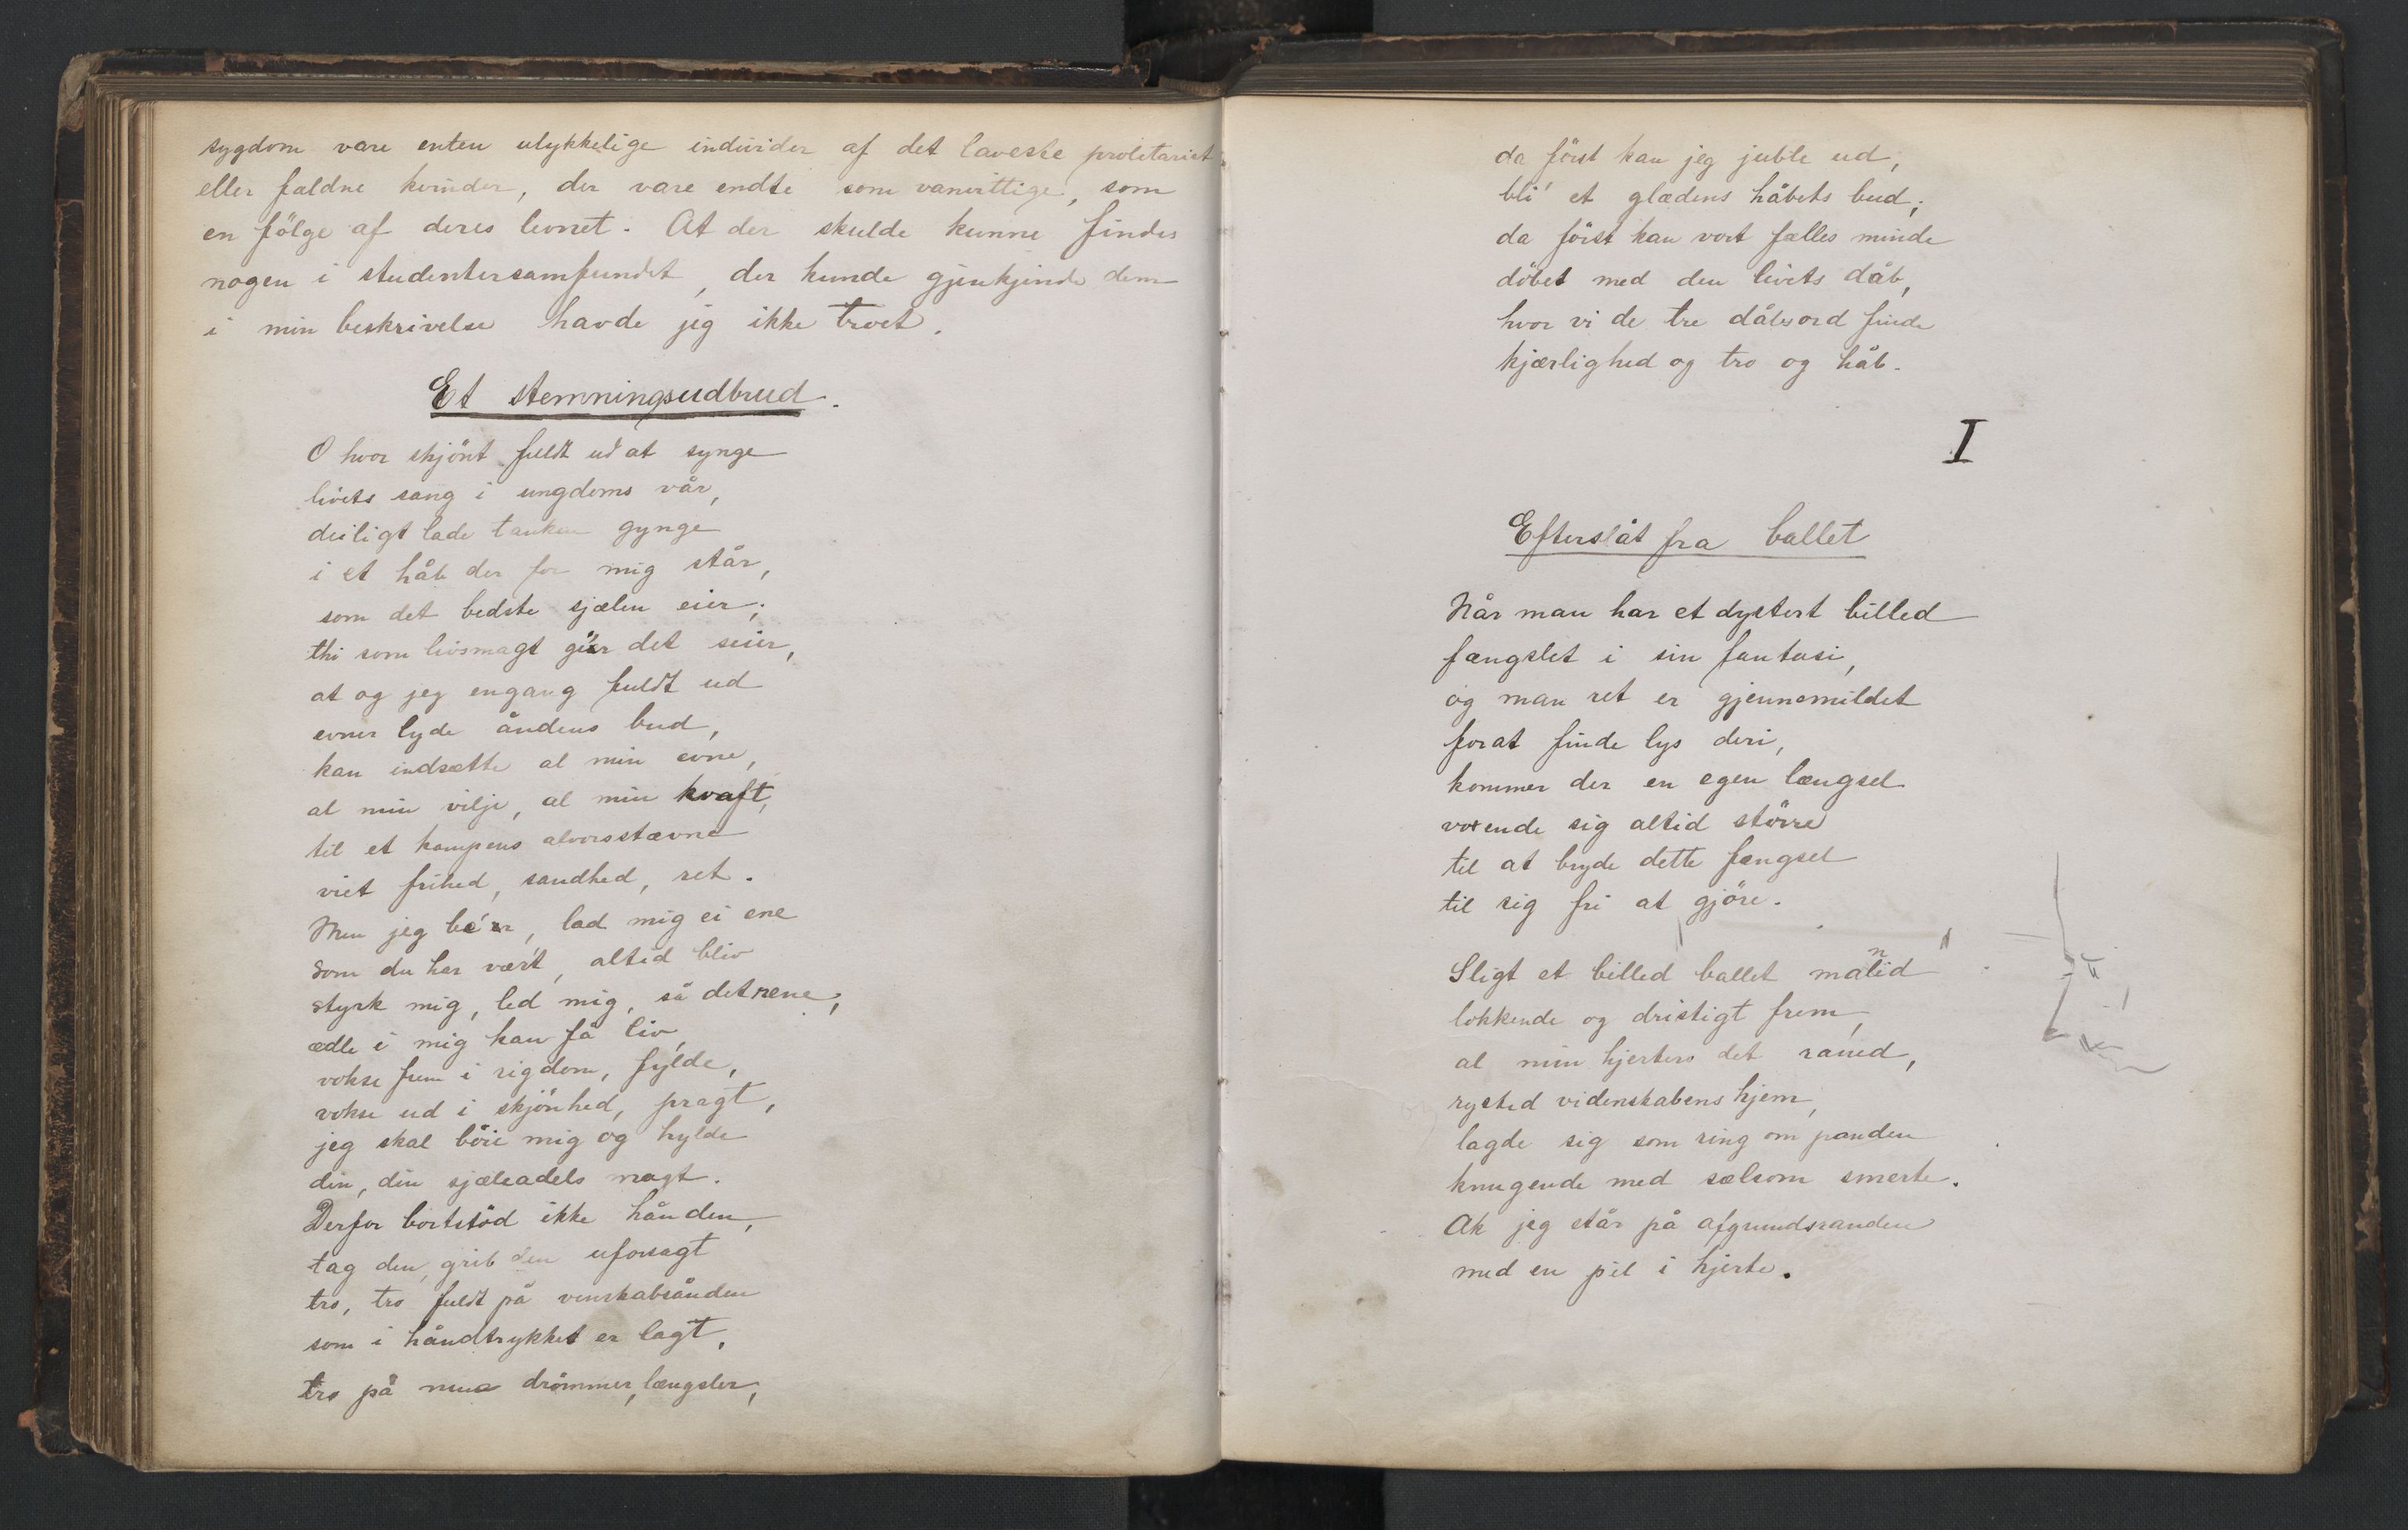 sygdom vare enten ulykkelige individer af det laveste proletariat
eller faldne kvinder, der vare endte som vanvittige, som
en fölge af deres levnet. At der skulde kunne findes
nogen i studentersamfundet, der kunde gjenkjende dem
i min beskrivelse havde jeg ikke troet.
Et stemningsudbrud.
O hvor skjönt fuldt ud at synge
livets sang i ungdoms vår,
deiligt lade tanken gynge
i et håb der for mig står,
som det bedste sjælen eier;
thi som livsmagt gi'r det seier,
at og jeg engang fuldt ud
evner lyde åndens bud,
kan indsætte al min evne,
al min vilje, al min kraft,
til et kampens alvorsstævne
viet frihed, sandhed, ret.
Men jeg be'er, lad mig ei ene
som du har vær't, altid bliv
styrk mig, led mig, så det rene,
ædle i mig kan få liv,
vokse frem i rigdom, fylde,
vokse ud i skjönhed, pragt,
jeg skal böie mig og hylde
din, din sjæleadels magt.
Derfor bortstöd ikke hånden,
tag den, grib den uforsagt
tro, tro fuldt på venskabsånden
som i håndtrykket er lagt,
tro på mine drömmer, længsler,
da först kan jeg juble ud,
bli' et glædens håbets bud;
da först kan vort fælles minde
döbet med den livets dåb,
hvor vi de tre dåbsord finde
kjærlighed og tro og håb.
I
Efterslåt fra ballet
Når man har et dystert billed
fængslet i sin fantasi,
og man ret er gjennemildet
forat finde lys deri,
kommer der en egen længsel
voxende sig altid större
til at bryde dette fængsel
til sig fri at gjöre.
Sligt et billed ballet malid
n
lokkende og dristigt frem,
al min hjertero det raned,
rysted videnskabens hjem,
lagde sig som ring om panden
knugende med sælsom smerte.
Ak jeg står på afgrundsranden
med en pil i hjerte.